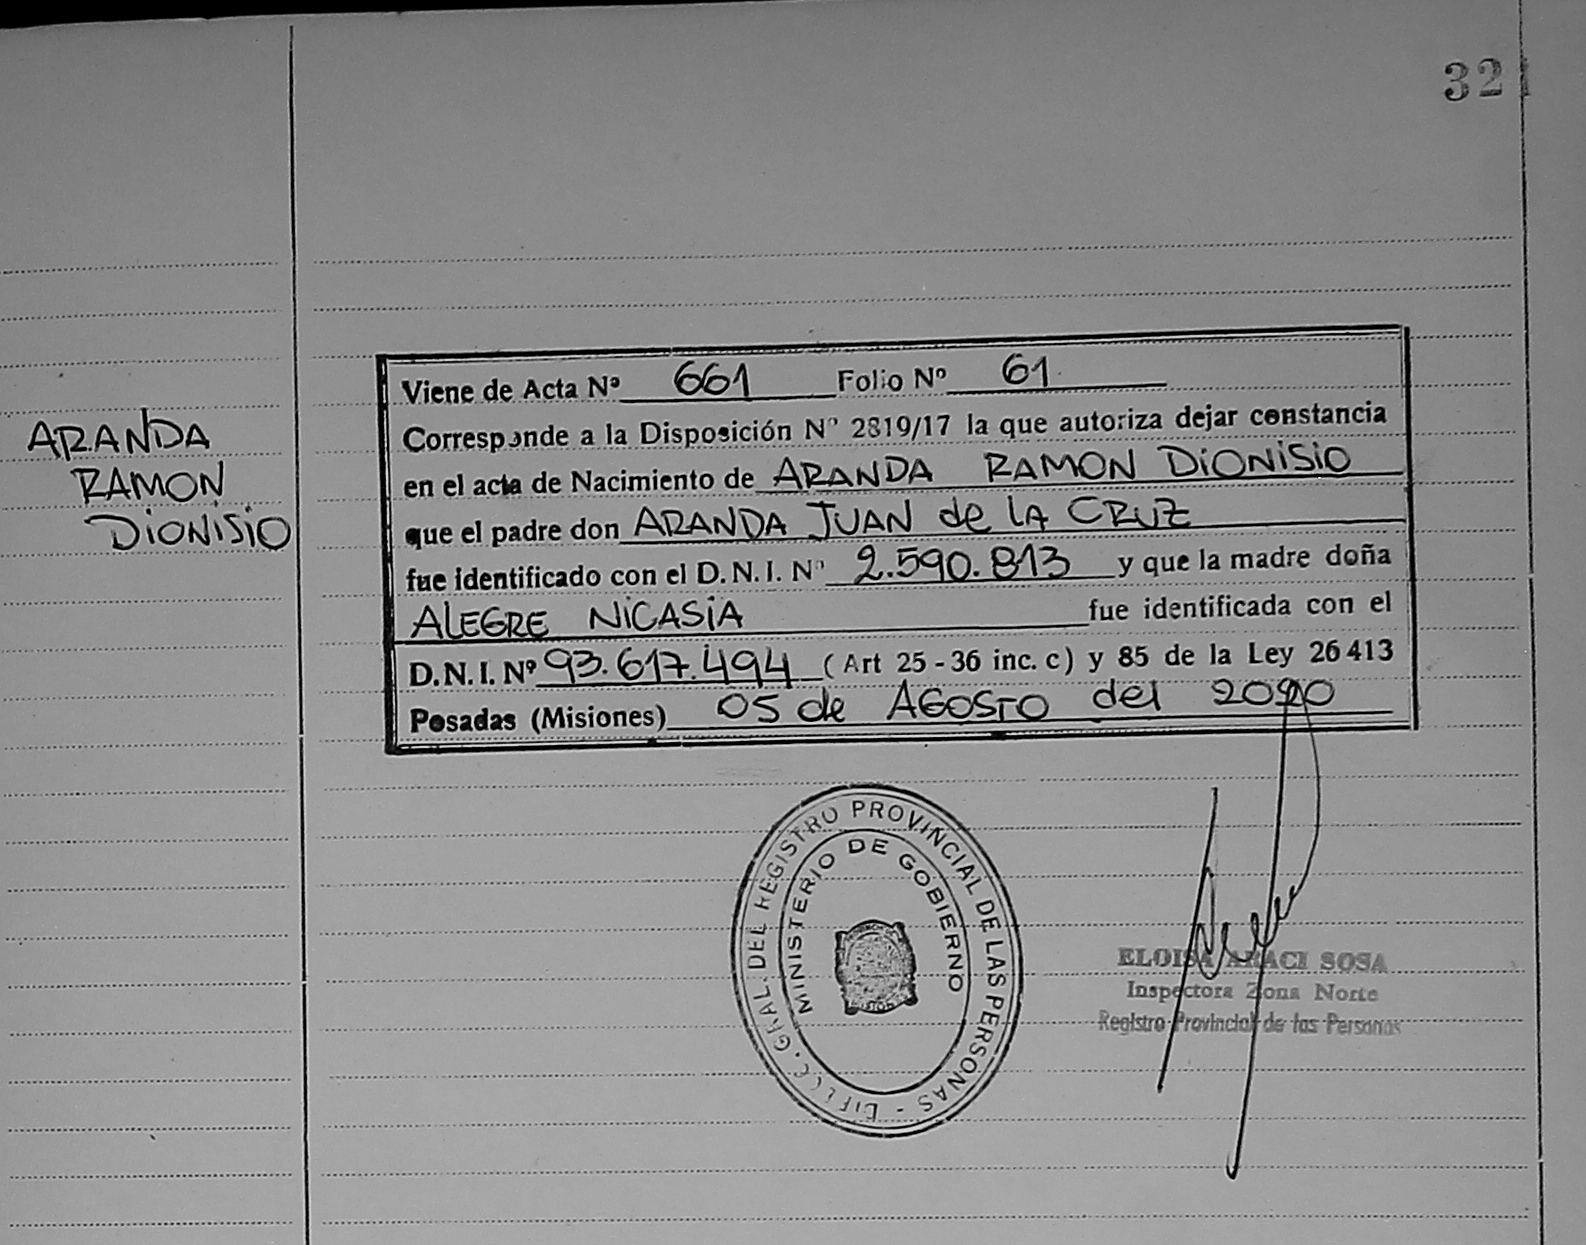 321
ARANDA
RAMON
DIONISIO
Viene de Acta Nº 661 Folio Nº 61
Corresponde a la Disposición Nº 2819/17 la que autoriza dejar constancia
en el acta de Nacimiento de ARANDA RAMON DIONISIO
que el padre don ARANDA JUAN de LA CRUZ
fue identificado con el D.N.I. Nº 2.590.813 y que la madre doña
ALEGRE NICASIA fue identificada con el
D.N.I. Nº 93.617.494 (Art 25 - 36 inc. c) y 85 de la Ley 26413
Posadas (Misiones) 05 de AGOSTO del 2020
GRAL. DEL REGISTRO PROVINCIAL DE LAS PERSONAS -
MINISTERIO DE GOBIERNO
ELOISA ARACI SOSA
Inspectora Zona Norte
Registro Provincial de las Personas